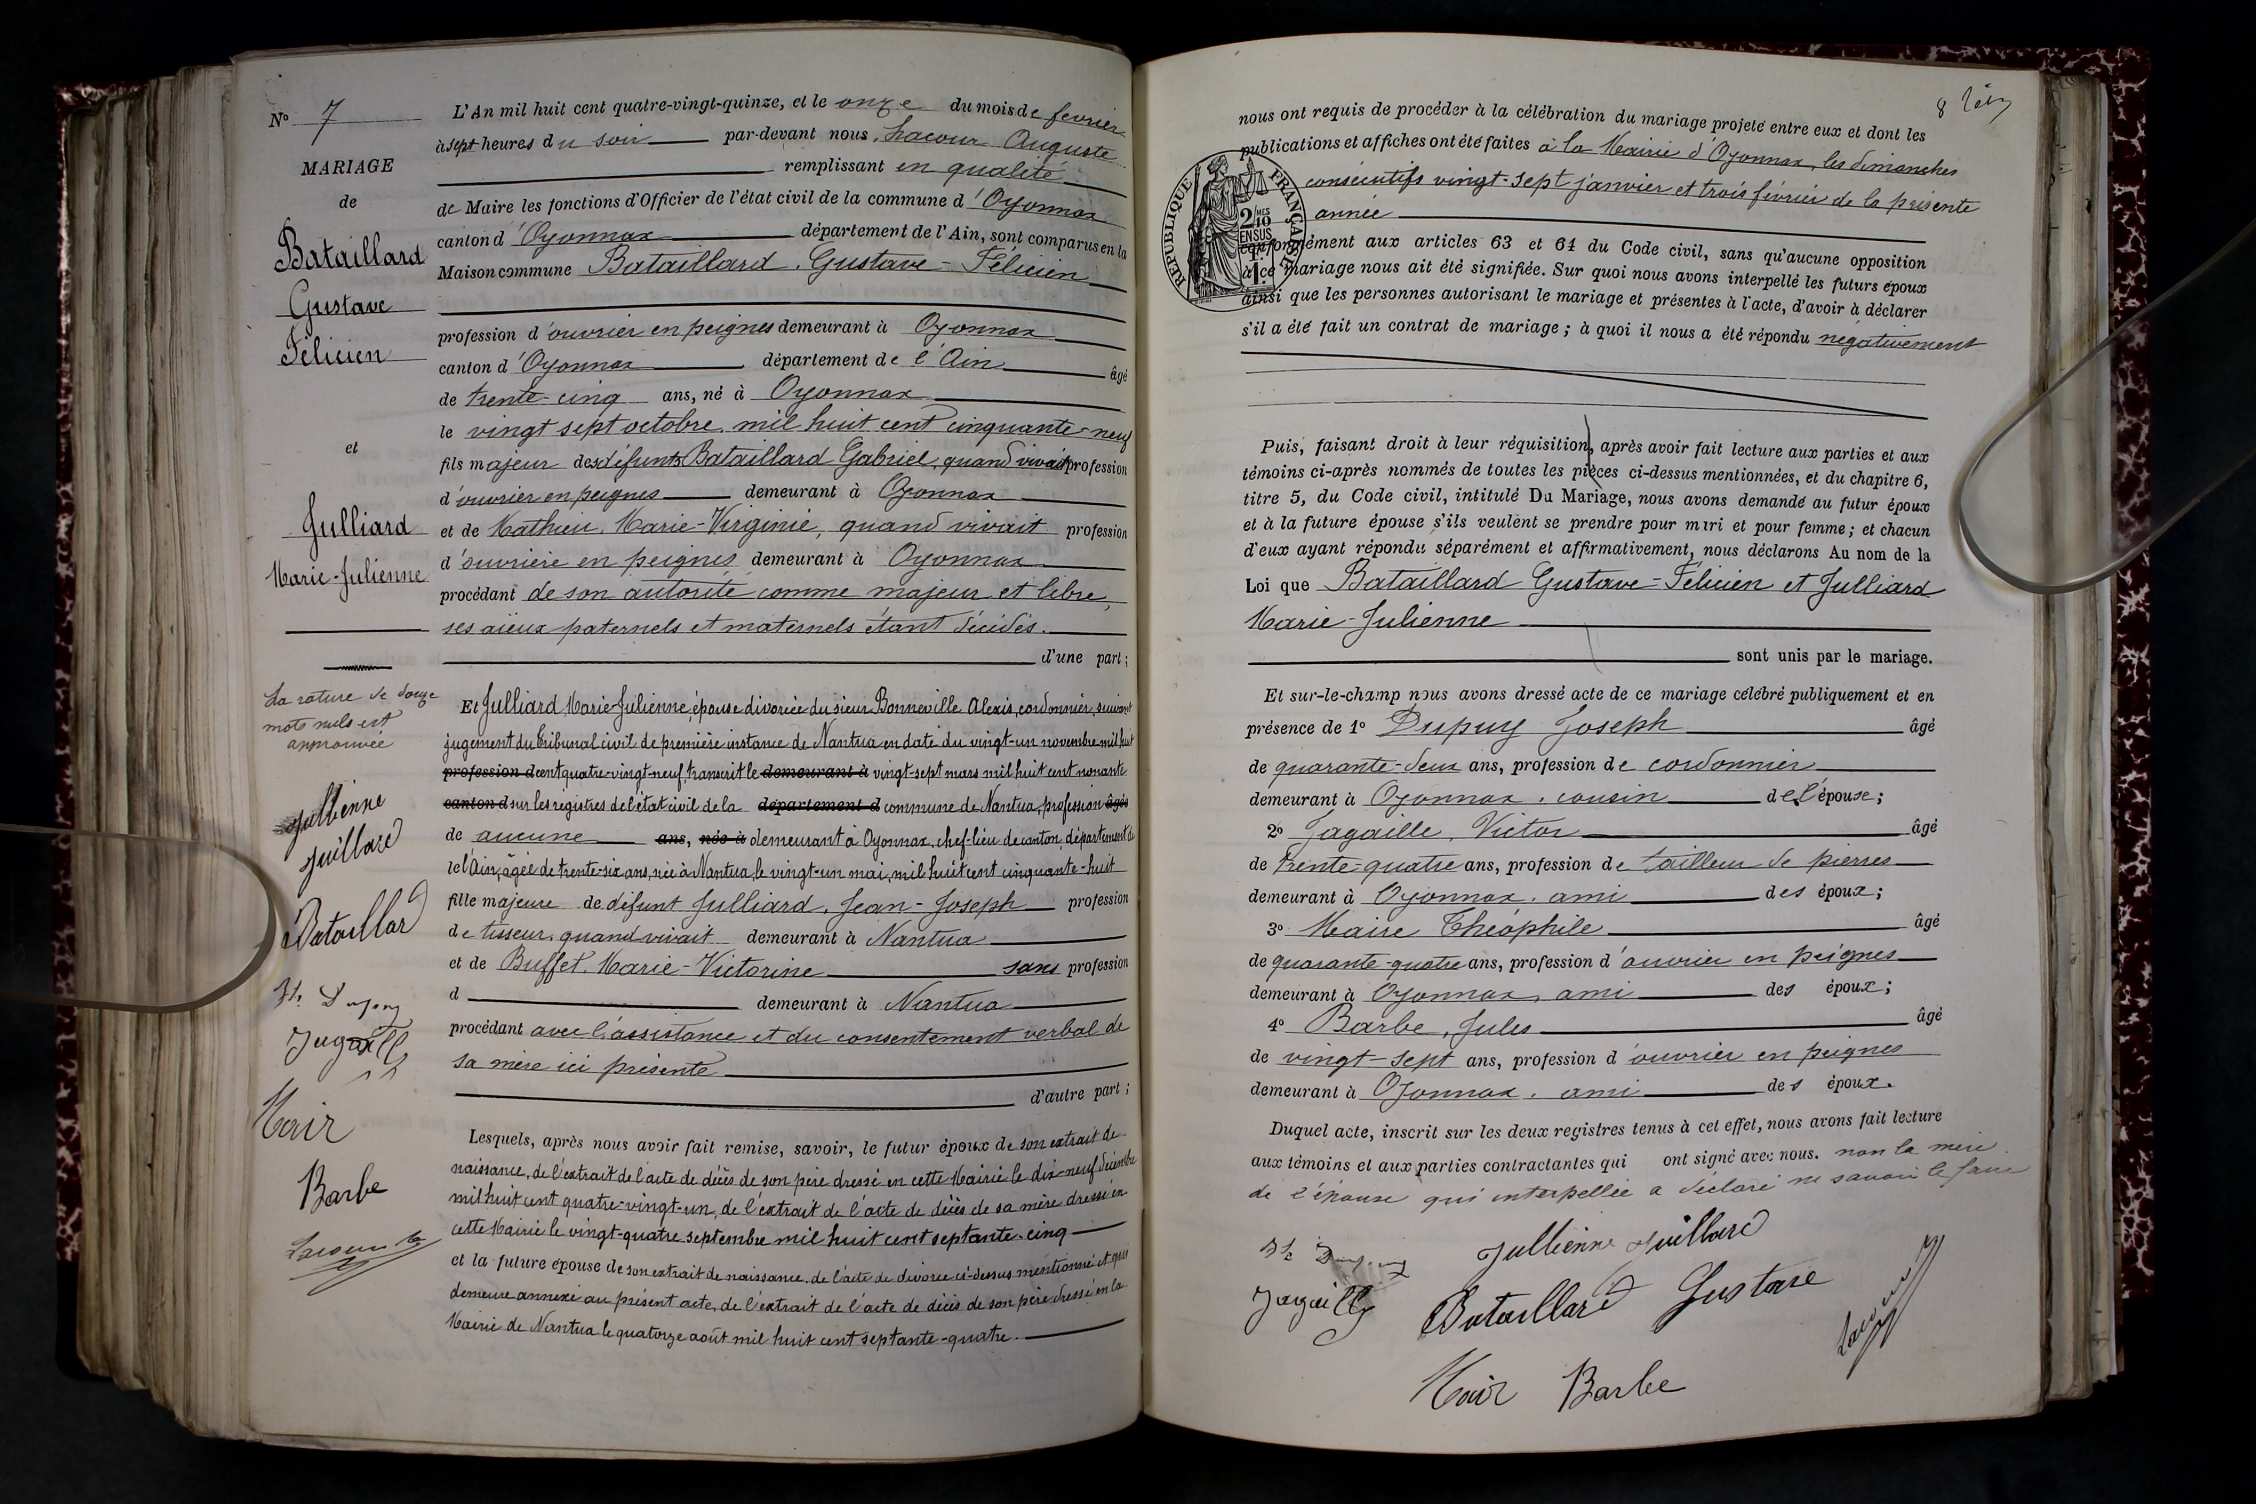 N° 7
MARIAGE
de
Bataillard
Gustave
Félicien
et
Julliard
Marie-Julienne
La rature de douze
mots nuls est
approuvée
Jullienne
Juillard
Bataillard
Jh Dupuy
Jagaille
Mair
Barbe
Lacour
L'An mil huit cent quatre-vingt-quinze, et le onze du mois de février
à sept heures du soir par-devant nous, Lacour Auguste
remplissant en qualité
de Maire les fonctions d'Officier de l'état civil de la commune d'Oyonnax
canton d'Oyonnax département de l'Ain, sont comparus en la
Maison commune Bataillard, Gustave-Félicien
profession d'ouvrier en peignes demeurant à Oyonnax
canton d'Oyonnax département de l'Ain âgé
de trente-cinq ans, né à Oyonnax
le vingt sept octobre mil huit cent cinquante-neuf
fils majeur des défunts Bataillard Gabriel, quand vivait profession
d'ouvrier en peignes demeurant à Oyonnax
et de Mathieu, Marie-Virginie, quand vivait profession
d'ouvrière en peignes demeurant à Oyonnax
procédant de son autorité comme majeur et libre,
ses aïeux paternels et maternels étant décédés.
d'une part;
Et Julliard, Marie-Julienne, épouse divorcée du sieur Bonneville Alexis, cordonnier, suivant
jugement du tribunal civil de première instance de Nantua en date du vingt-un novembre mil huit
profession d cent quatre-vingt-neuf, transcrit le demeurant à vingt-sept mars mil huit cent nonante
canton d sur les registres de l'état civil de la département d commune de Nantua, profession âgée
de aucune ans, née à demeurant à Oyonnax, chef-lieu de canton, département de
le l'Ain, âgée de trente-six ans, née à Nantua, le vingt-un mai, mil huit cent cinquante-huit
fille majeure de défunt Julliard, Jean-Joseph profession
de tisseur, quand vivait demeurant à Nantua
et de Buffet, Marie-Victorine sans profession
d demeurant à Nantua
procédant avec l'assistance et du consentement verbal de
sa mère ici présente
d'autre part;
Lesquels, après nous avoir fait remise, savoir, le futur époux de son extrait de
naissance, de l'extrait de l'acte de décès de son père dressé en cette Mairie le dix-neuf décembre
mil huit cent quatre-vingt-un, de l'extrait de l'acte de décès de sa mère dressé en
cette Mairie le vingt-quatre septembre mil huit cent septante-cinq
et la future épouse de son extrait de naissance, de l'acte de divorce ci-dessus mentionné et qui
demeure annexé au présent acte, de l'extrait de l'acte de décès de son père dressé en la
Mairie de Nantua le quatorze août mil huit cent septante-quatre.
8
nous ont requis de procéder à la célébration du mariage projeté entre eux et dont les
publications et affiches ont été faites à la Mairie d'Oyonnax, les dimanches
consécutifs vingt-sept janvier et trois février de la présente
année
RÉPUBLIQUE FRANÇAISE
2/10 MES
EN SUS
conformément aux articles 63 et 64 du Code civil, sans qu'aucune opposition
à ce mariage nous ait été signifiée. Sur quoi nous avons interpellé les futurs époux
ainsi que les personnes autorisant le mariage et présentes à l'acte, d'avoir à déclarer
s'il a été fait un contrat de mariage; à quoi il nous a été répondu négativement
Puis, faisant droit à leur réquisition, après avoir fait lecture aux parties et aux
témoins ci-après nommés de toutes les pièces ci-dessus mentionnées, et du chapitre 6,
titre 5, du Code civil, intitulé Du Mariage, nous avons demandé au futur époux
et à la future épouse s'ils veulent se prendre pour mari et pour femme; et chacun
d'eux ayant répondu séparément et affirmativement, nous déclarons Au nom de la
Loi que Bataillard Gustave-Félicien et Julliard
Marie-Julienne
sont unis par le mariage.
Et sur-le-champ nous avons dressé acte de ce mariage célébré publiquement et en
présence de 1° Dupuy Joseph âgé
de quarante-deux ans, profession de cordonnier
demeurant à Oyonnax, cousin de l'épouse;
2° Jagaille, Victor âgé
de trente-quatre ans, profession de tailleur de pierres
demeurant à Oyonnax, ami des époux;
3° Maire Théophile âgé
de quarante-quatre ans, profession d'ouvrier en peignes
demeurant à Oyonnax, ami des époux;
4° Barbe, Jules âgé
de vingt-sept ans, profession d'ouvrier en peignes
demeurant à Oyonnax, ami des époux.
Duquel acte, inscrit sur les deux registres tenus à cet effet, nous avons fait lecture
aux témoins et aux parties contractantes qui ont signé avec nous. non la mère
de l'épouse qui interpellée a déclaré ne savoir le faire
Jh Dupuy Jullienne Juillard
Jagaille Bataillard Gustave Lacour
Mair Barbe